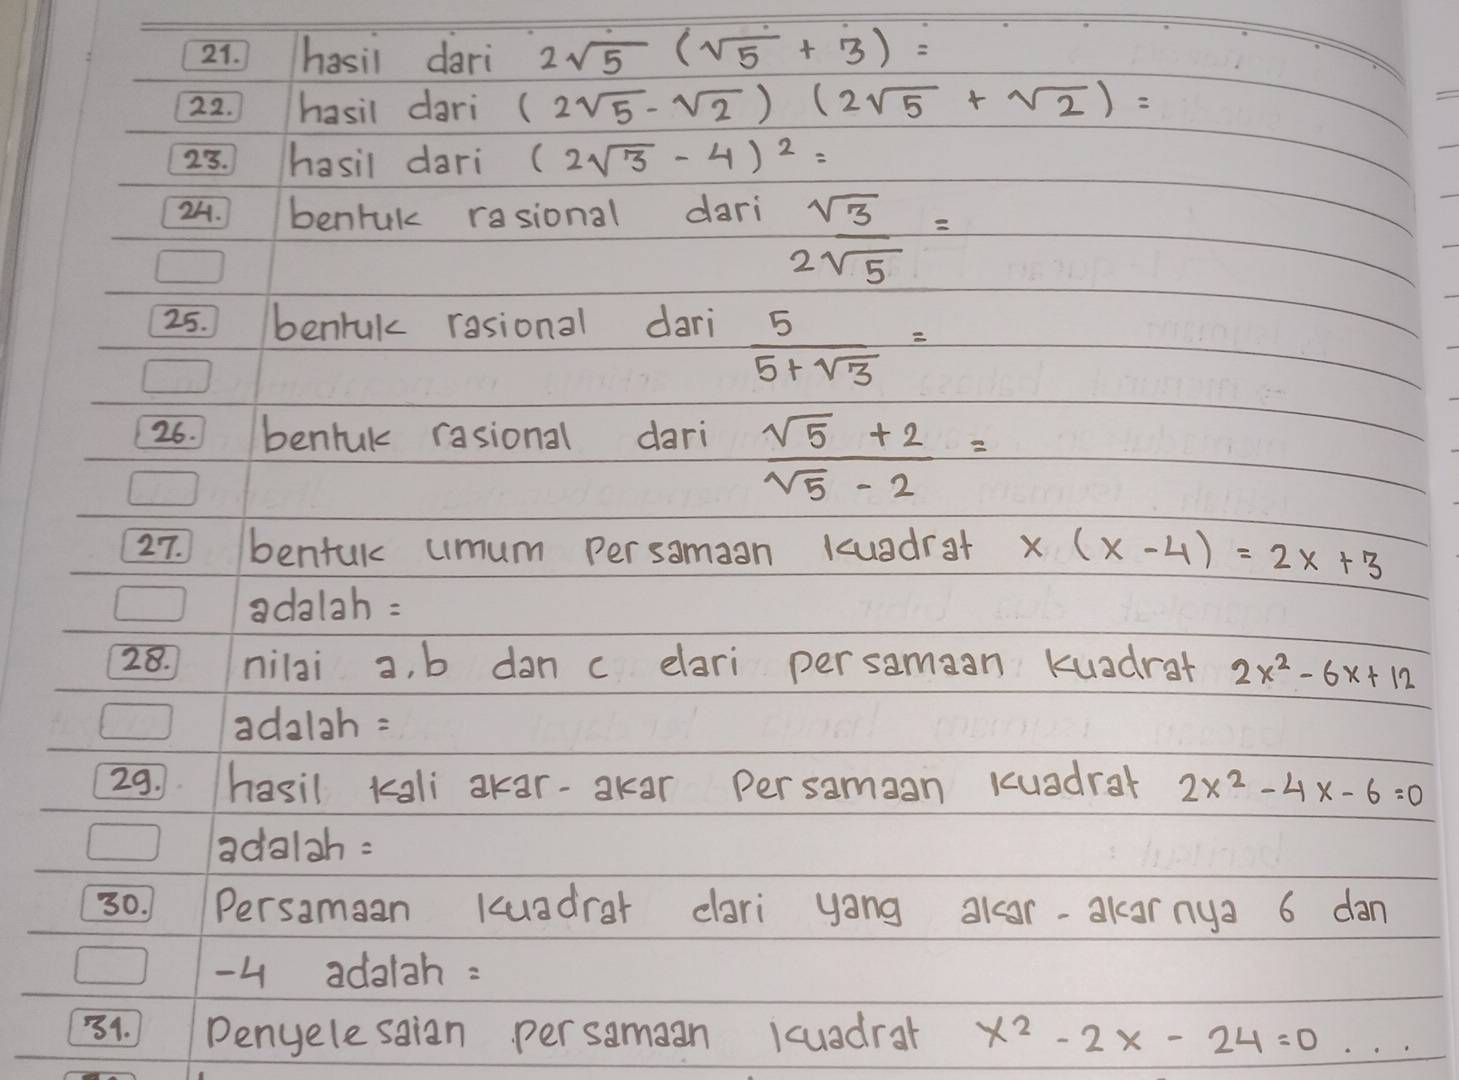 21. hasil dari 2√5 (√5 + 3) =
22. hasil dari (2√5 - √2) (2√5 + √2) =
23. hasil dari (2√3 - 4)² =
24. bentuk rasional dari √3 / 2√5 =
25. bentuk rasional dari 5 / 5+√3 =
26. bentuk rasional dari √5 + 2 / √5 - 2 =
27. bentuk umum persamaan kuadrat x (x - 4) = 2x + 3
adalah =
28. nilai a, b dan c dari persamaan kuadrat 2x² - 6x + 12
adalah =
29. hasil kali akar-akar persamaan kuadrat 2x² - 4x - 6 = 0
adalah =
30. Persamaan kuadrat dari yang akar-akarnya 6 dan
-4 adalah =
31. Penyelesaian persamaan kuadrat x² - 2x - 24 = 0 ...